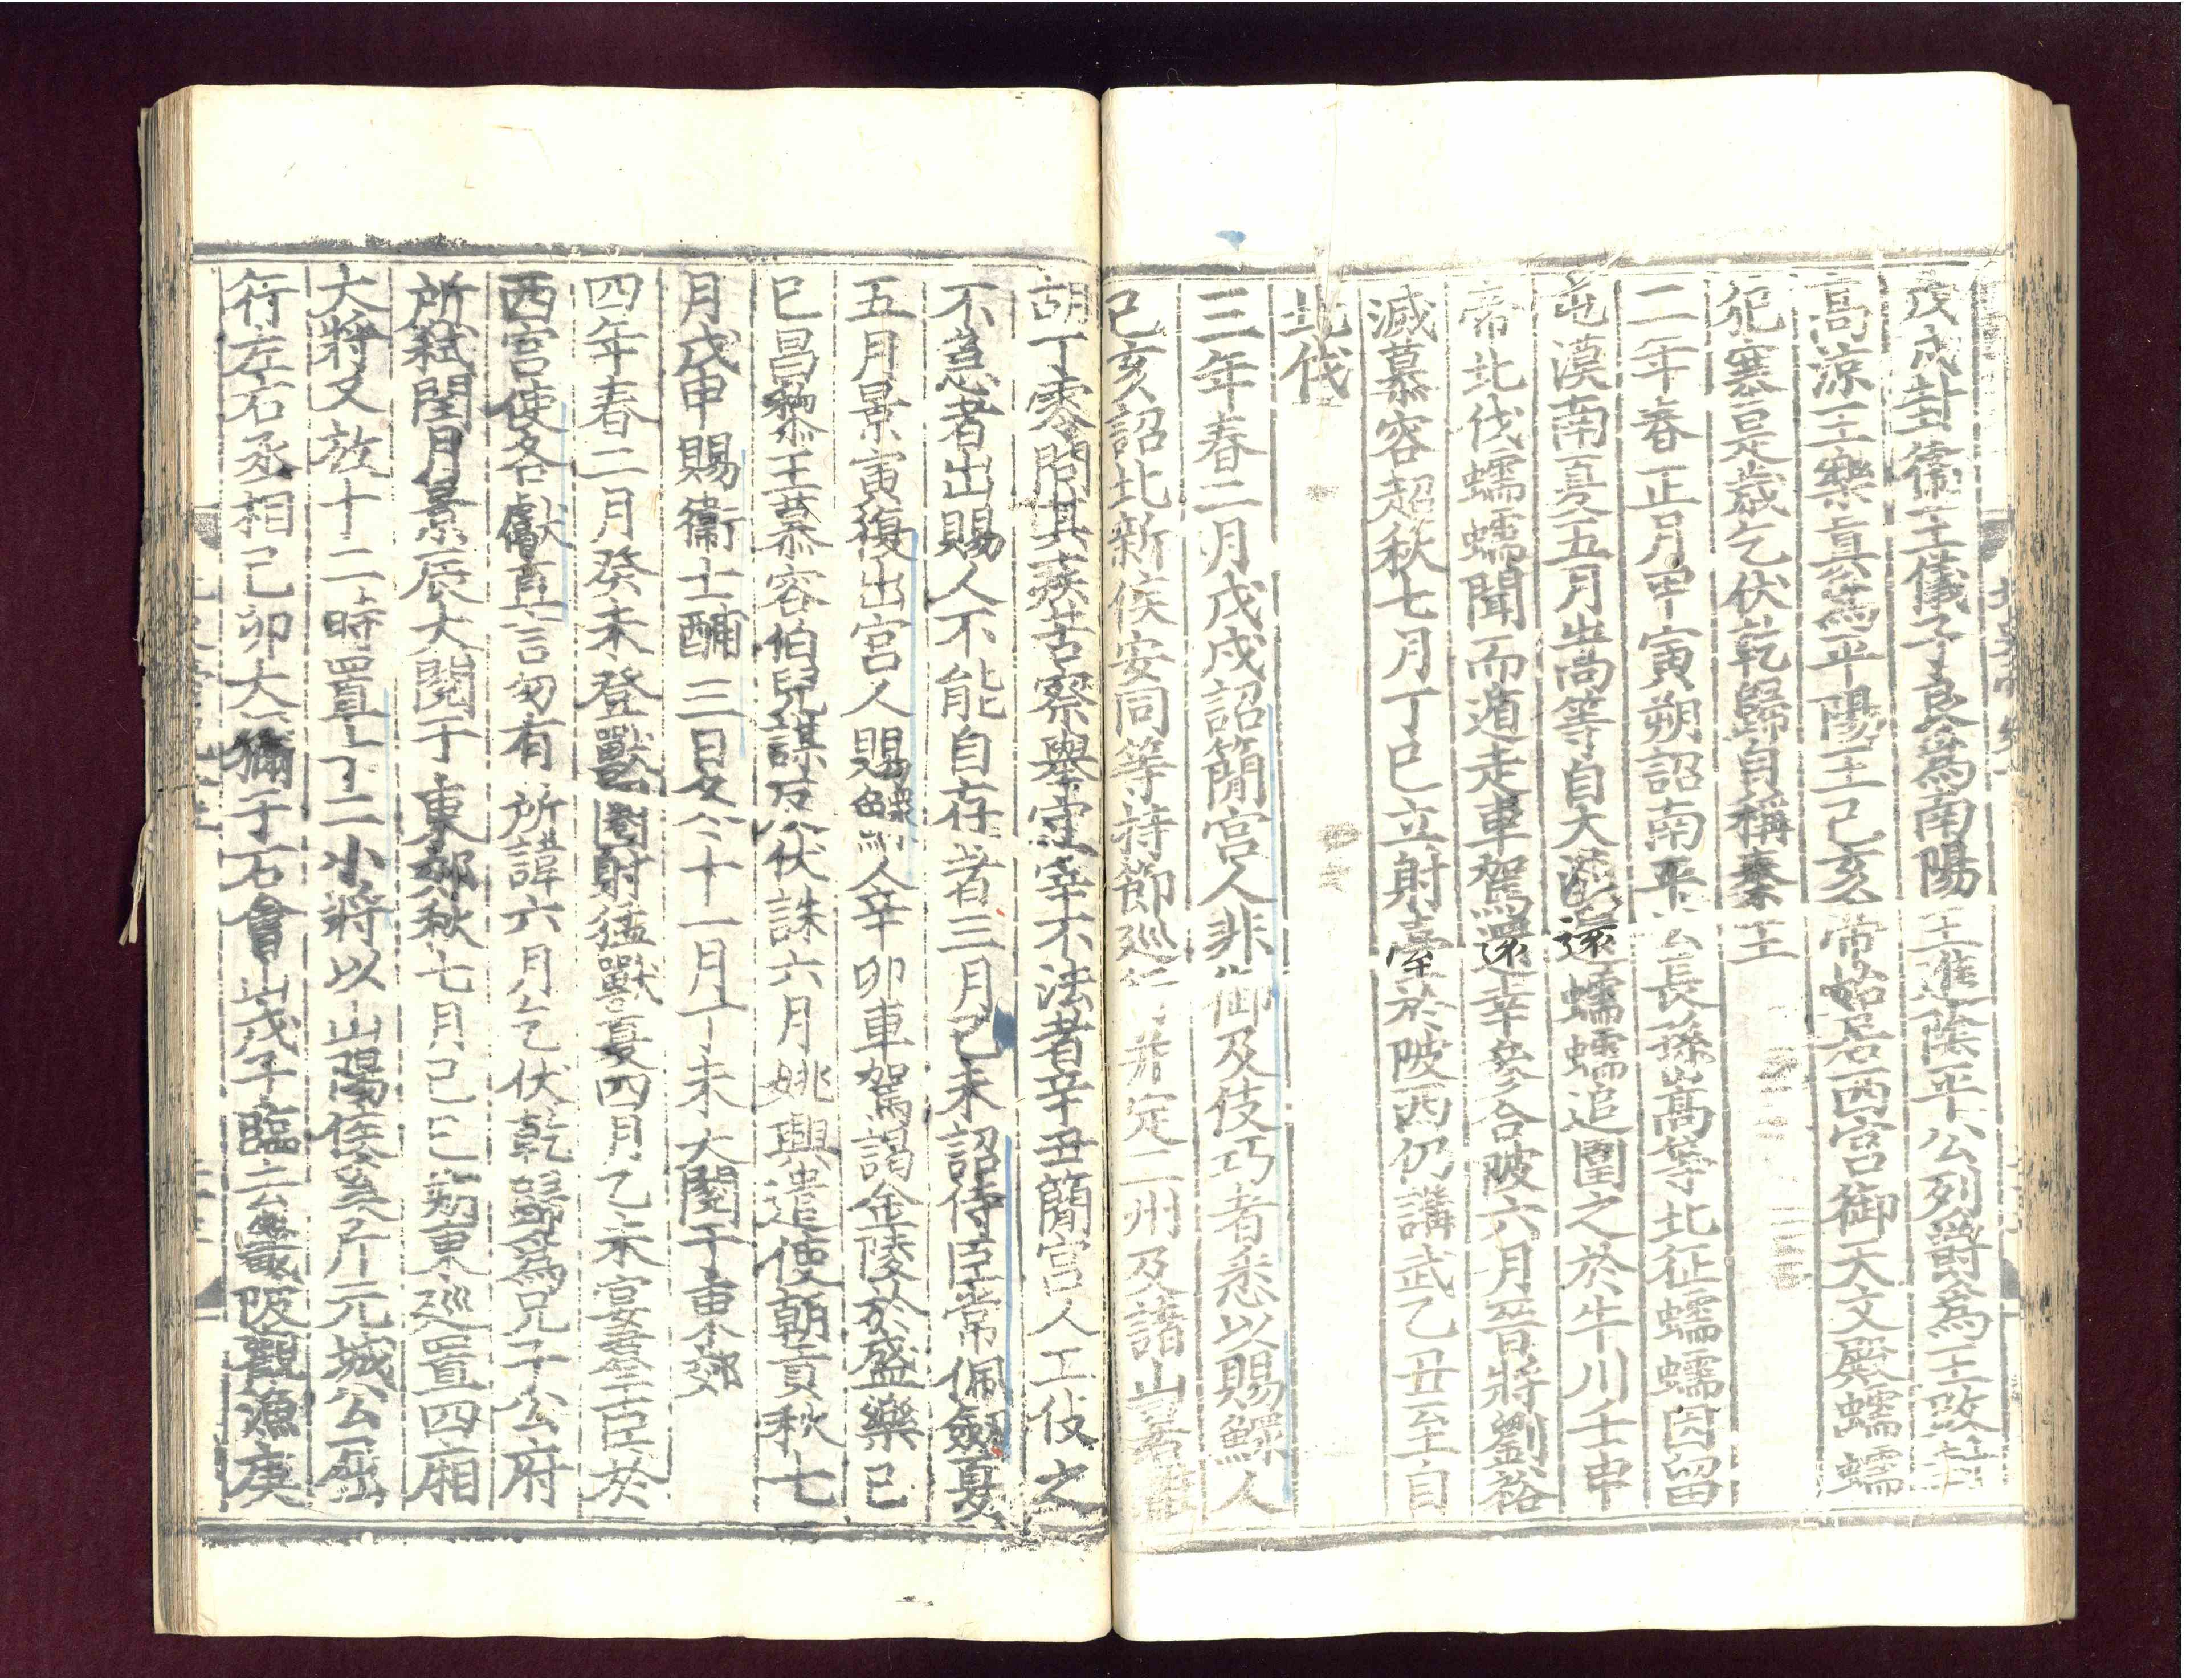 戊戌封衛王儀子良爲南陽王進陰平公列爵爲王改封
高涼王樂真爲平陽王己亥帝始居西宮御天文殿蠕蠕
犯塞是歲乞伏乾歸自稱秦王
二年春正月甲寅朔詔南平公長孫嵩等北征蠕蠕因留
屯漠南夏五月出嵩等自大漠還蠕蠕追圍之於牛川壬申
帝北伐蠕蠕聞而遁走車駕還幸參合陂六月晉將劉裕
滅慕容超秋七月丁巳立射臺於陂西仍講武乙丑至自
北伐
三年春二月戊戌詔簡宮人非御及伎巧者悉以賜鰥人
己亥詔北新侯安同等持節巡行 并定二州及諸山
胡丁零問其疾苦察舉守宰不法者辛丑簡宮人工伎之
不急者出賜人不能自存者三月己未詔侍臣常佩劍夏
五月景寅復出宮人賜鰥人辛卯車駕謁金陵於盛樂己
巳昌黎王慕容伯兒謀反伏誅六月姚興遣使朝貢秋七
月戊申賜衞士酺三日冬十一月丁未大閱于東郊
四年春二月癸未登獸圈射猛獸夏四月乙未宴羣臣於
西宮使各獻直言勿有所諱六月乞伏乾歸爲兄子公府
所弒閏月景辰大閱于東郊秋七月己巳朔東巡置四廂
大將又放十二時置十二小將以山陽侯奚斤元城公屈
行左右丞相己卯大獮于石會山戊子臨去畿陂觀漁庚